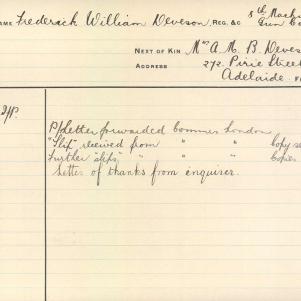 NAME Frederick William Deveson, REG. &c 8th Mach.
Gun Co
NEXT OF KIN Mrs A. M. B. Deves
ADDRESS 272 Pirie Street
Adelaide
P/C letter forwarded Commrs London
"Slip" received from " " Copy se
Further "slips" " " " Copies
Letter of thanks from enquirer.